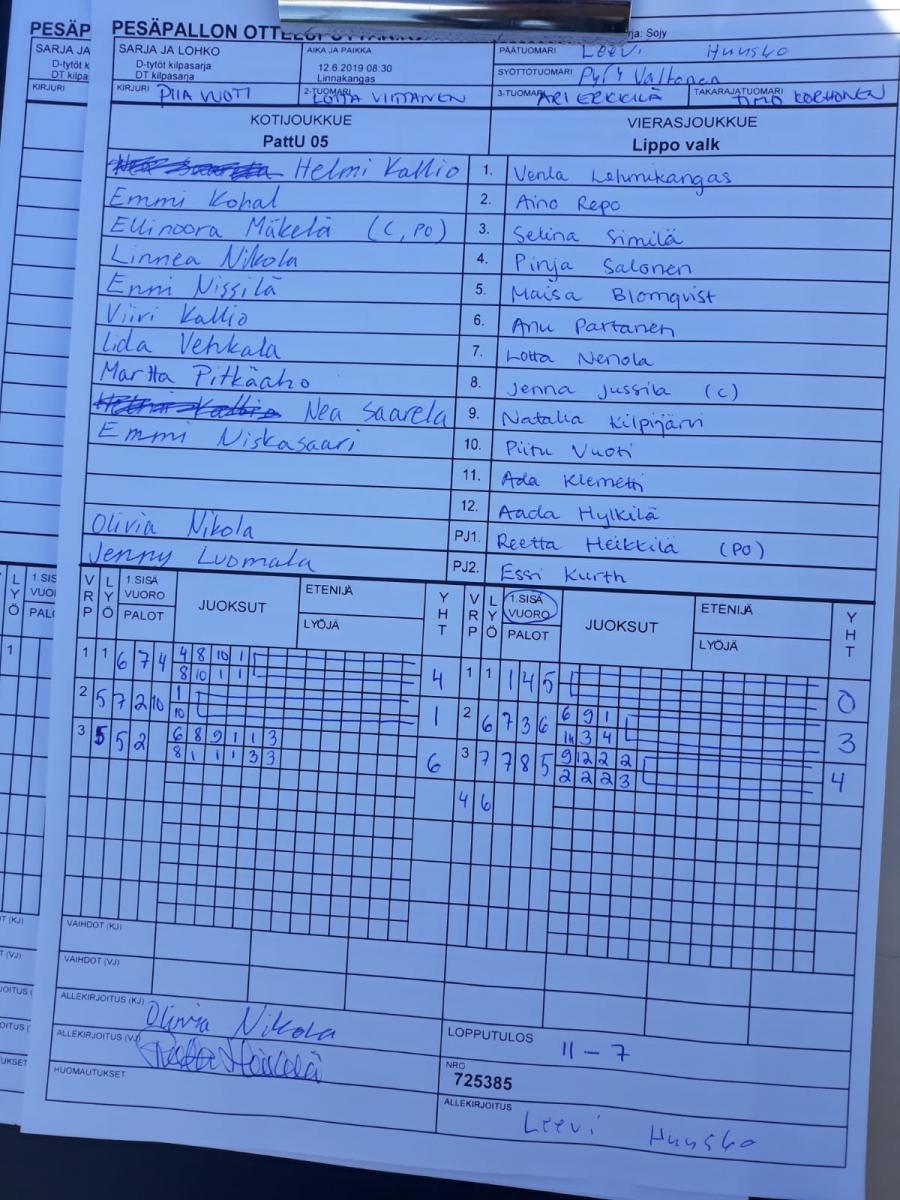 PESÄPALLON OTTELUPÖYTÄKIRJA
rja: Sojy
SARJA JA LOHKO
D-tytöt kilpasarja
DT kilpasarja
AIKA JA PAIKKA
12.6.2019 08:30
Linnakangas
PÄÄTUOMARI Leevi Huusko
SYÖTTÖTUOMARI Pyry Valtonen
KIRJURI PIIA VUOTI
2-TUOMARI LOTTA VIITTANEN
3-TUOMARI ARI ERKKILÄ
TAKARAJATUOMARI TIMO KORHONEN
KOTIJOUKKUE
PattU 05
VIERASJOUKKUE
Lippo valk
Helmi Kallio 1. Venla Lehmikangas
Emmi Kohal 2. Aino Repo
Ellinoora Mäkelä (C, PO) 3. Selina Similä
Linnea Nikola 4. Pinja Salonen
Enni Nissilä 5. Maisa Blomqvist
Viivi Kallio 6. Anu Partanen
Iida Vehkala 7. Lotta Nenola
Martta Pitkäaho 8. Jenna Jussila (C)
Nea Saarela 9. Natalia Kilpijärvi
Emmi Niskasaari 10. Piitu Vuoti
11. Ada Klemetti
12. Aada Hylkilä
Olivia Nikola PJ1. Reetta Heikkilä (PO)
Jenny Luomala PJ2. Essi Kurth
VRP LYÖ 1.SISÄ VUORO PALOT JUOKSUT ETENIJÄ LYÖJÄ YHT VRP LYÖ 1.SISÄ VUORO PALOT JUOKSUT ETENIJÄ LYÖJÄ YHT
1 1 6 7 4 4 8 10 1 4 1 1 1 4 5 0
8 10 1 1
2 5 7 2 10 1 1 2 6 7 3 6 6 9 1 3
10 3 4
3 5 5 2 6 8 9 1 1 3 6 3 7 7 8 5 9 12 2 2 4
8 1 1 1 3 3 2 2 2 3
4 6
VAIHDOT (KJ)
VAIHDOT (VJ)
ALLEKIRJOITUS (KJ) Olivia Nikola
ALLEKIRJOITUS (VJ) Reetta Heikkilä
HUOMAUTUKSET
LOPPUTULOS 11-7
NRO
725385
ALLEKIRJOITUS Leevi Huusko